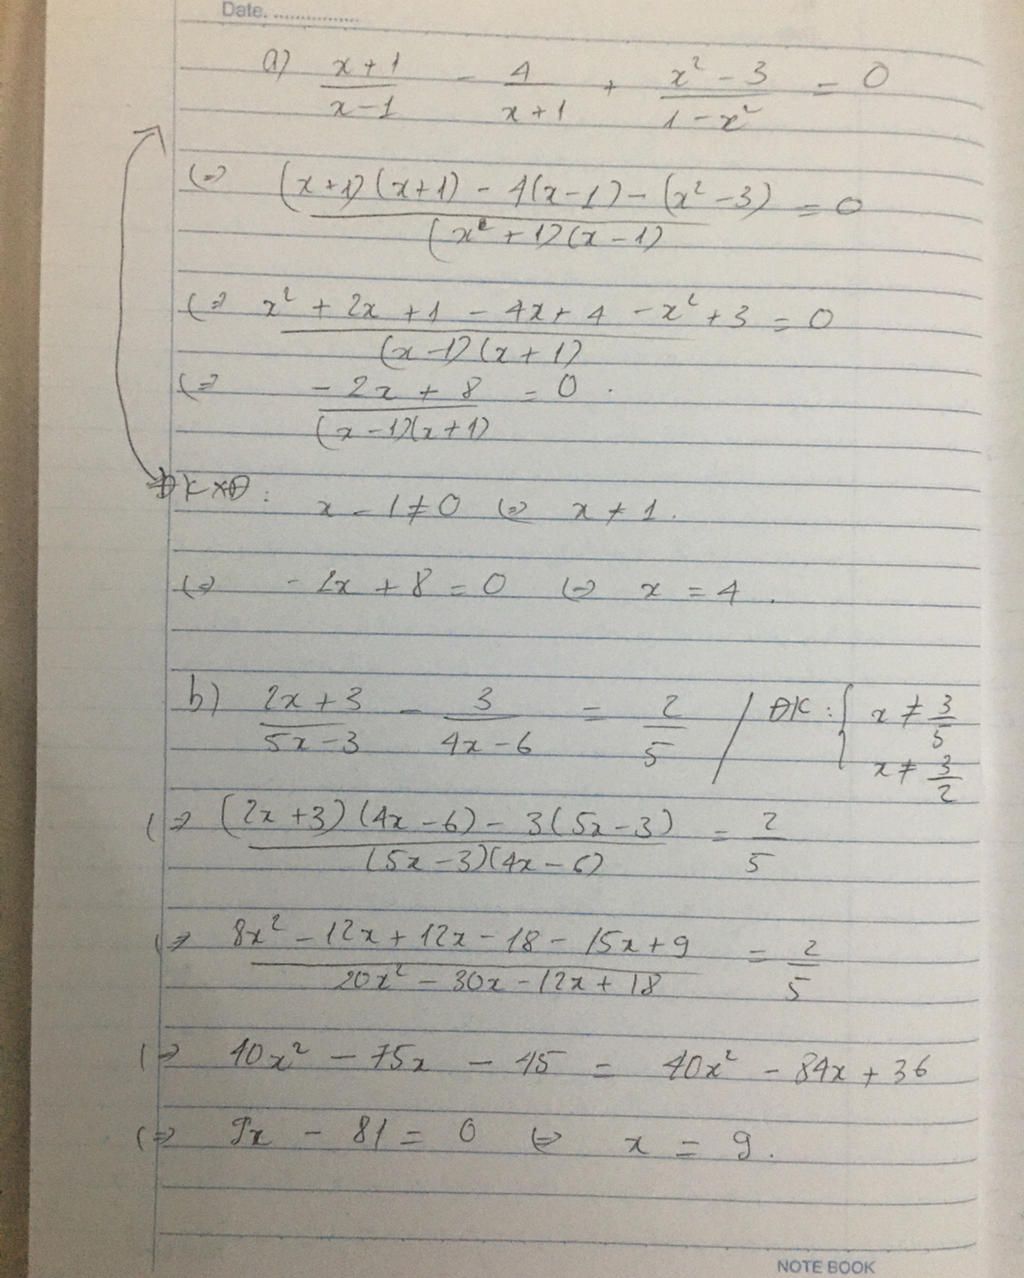 Date. ................
a) (x+1)/(x-1) - 4/(x+1) + (x² - 3)/(1-x²) = 0
(=) ((x+1)(x+1) - 4(x-1) - (x² - 3))/((x² + 1)(x-1)) = 0
(=) (x² + 2x + 1 - 4x + 4 - x² + 3)/((x-1)(x+1)) = 0
(=) (-2x + 8)/((x-1)(x+1)) = 0.
ĐKXĐ: x - 1 ≠ 0 (=) x ≠ 1.
(=) -2x + 8 = 0 (=) x = 4.
b) (2x+3)/(5x-3) - 3/(4x-6) = 2/5 / ĐK: { x ≠ 3/5
x ≠ 3/2
(=) ((2x+3)(4x-6) - 3(5x-3))/((5x-3)(4x-6)) = 2/5
(=) (8x² - 12x + 12x - 18 - 15x + 9)/(20x² - 30x - 12x + 18) = 2/5
(=) 40x² - 75x - 45 = 40x² - 84x + 36
(=) 9x - 81 = 0 (=) x = 9.
NOTE BOOK